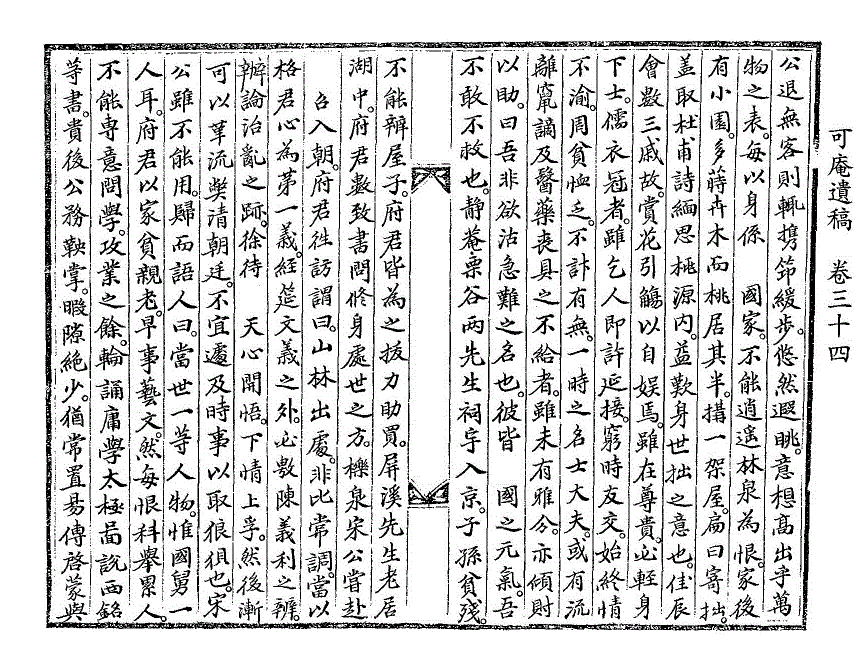 可庵遺稿　卷三十四
公退無客則輒携笻緩步。悠然遐眺。意想高出乎萬
物之表。每以身係　國家。不能逍遙林泉爲恨。家後
有小園。多蒔卉木而桃居其半。搆一架屋。扁曰寄拙。
盖取杜甫詩緬思桃源內。益歎身世拙之意也。佳辰
會數三戚故。賞花引觴以自娛焉。雖在尊貴。必輕身
下士。儒衣冠者。雖乞人即許延接。窮時友交。始終情
不渝。周貧恤乏。不計有無。一時之名士大夫。或有流
離竄謫及醫藥喪具之不給者。雖未有雅分。亦傾財
以助。曰吾非欲沽急難之名也。彼皆　國之元氣。吾
不敢不救也。靜菴栗谷兩先生祠宇入京。子孫貧殘。
不能辦屋子。府君皆爲之拔力助買。屛溪先生老居
湖中。府君數致書問修身處世之方。櫟泉宋公嘗赴
召入朝。府君徃訪謂曰。山林出處。非比常調。當以
格君心爲第一義。經筵文義之外。必數陳義利之辨。
辨論治亂之跡。徐待　天心開悟。下情上孚。然後漸
可以革流獘清朝廷。不宜遽及時事以取狼狽也。宋
公雖不能用。歸而語人曰。當世一等人物。惟國舅一
人耳。府君以家貧親老。早事藝文。然每恨科擧累人。
不能專意問學。攻業之餘。輪誦庸學太極啚說西銘
等書。貴後公務鞅掌。暇隙絶少。猶常置易傳啓蒙與